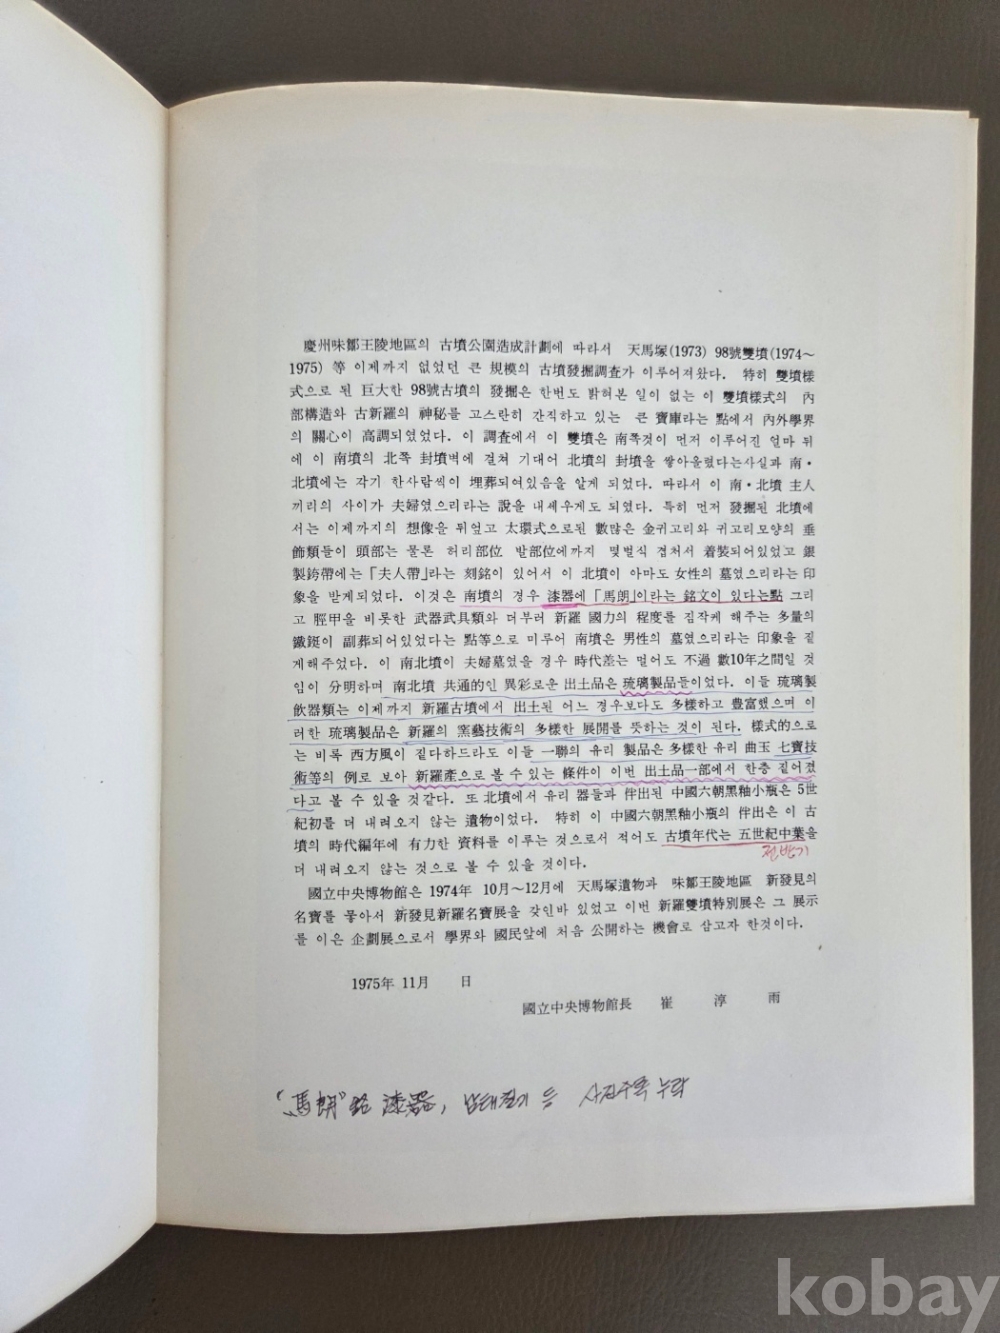 慶州味鄒王陵地區의 古墳公園造成計劃에 따라서 天馬塚(1973) 98號雙墳(1974～
1975) 等 이제까지 없었던 큰 規模의 古墳發掘調査가 이루어져왔다. 特히 雙墳樣
式으로 된 巨大한 98號古墳의 發掘은 한번도 밝혀본 일이 없는 이 雙墳樣式의 內
部構造와 古新羅의 神秘를 고스란히 간직하고 있는 큰 寶庫라는 點에서 內外學界
의 關心이 高調되였었다. 이 調査에서 이 雙墳은 南쪽것이 먼저 이루어진 얼마 뒤
에 이 南墳의 北쪽 封墳벽에 걸쳐 기대어 北墳의 封墳을 쌓아올렸다는사실과 南·
北墳에는 각기 한사람씩이 埋葬되여있음을 알게 되었다. 따라서 이 南·北墳 主人
끼리의 사이가 夫婦였으리라는 說을 내세우게도 되었다. 특히 먼저 發掘된 北墳에
서는 이제까지의 想像을 뒤엎고 太環式으로된 數많은 金귀고리와 귀고리모양의 垂
飾類들이 頭部는 물론 허리部位 발部位에까지 몇벌식 겹쳐서 着裝되어있었고 銀
製銙帶에는 「夫人帶」라는 刻銘이 있어서 이 北墳이 아마도 女性의 墓였으리라는 印
象을 받게되었다. 이것은 南墳의 경우 漆器에 「馬朗」이라는 銘文이 있다는點 그리
고 脛甲을 비롯한 武器武具類와 더부러 新羅 國力의 程度를 짐작케 해주는 多量의
鐵鋌이 副葬되어있었다는 點等으로 미루어 南墳은 男性의 墓였으리라는 印象을 짙
게해주었다. 이 南北墳이 夫婦墓였을 경우 時代差는 멀어도 不過 數10年之間일 것
임이 分明하며 南北墳 共通的인 異彩로운 出土品은 琉璃製品들이었다. 이들 琉璃製
飮器類는 이제까지 新羅古墳에서 出土된 어느 경우보다도 多樣하고 豊富했으며 이
러한 琉璃製品은 新羅의 窯藝技術의 多樣한 展開를 뜻하는 것이 된다. 樣式的으로
는 비록 西方風이 짙다하드라도 이들 一聯의 유리 製品은 多樣한 유리 曲玉 七寶技
術等의 例로 보아 新羅產으로 볼 수 있는 條件이 이번 出土品一部에서 한층 짙어졌
다고 볼 수 있을 것같다. 또 北墳에서 유리 器들과 伴出된 中國六朝黑釉小瓶은 5世
紀初를 더 내려오지 않는 遺物이었다. 특히 이 中國六朝黑釉小瓶의 伴出은 이 古
墳의 時代編年에 有力한 資料를 이루는 것으로서 적어도 古墳年代는 五世紀中葉을
전반기
더 내려오지 않는 것으로 볼 수 있을 것이다.
國立中央博物館은 1974年 10月～12月에 天馬塚遺物과 味鄒王陵地區 新發見의
名寶를 뫃아서 新發見新羅名寶展을 갖인바 있었고 이번 新羅雙墳特別展은 그 展示
를 이은 企劃展으로서 學界와 國民앞에 처음 公開하는 機會로 삼고자 한것이다.
1975年 11月 日
國立中央博物館長 崔 淳 雨
"馬朗"銘 漆器, 등 누락
kobay